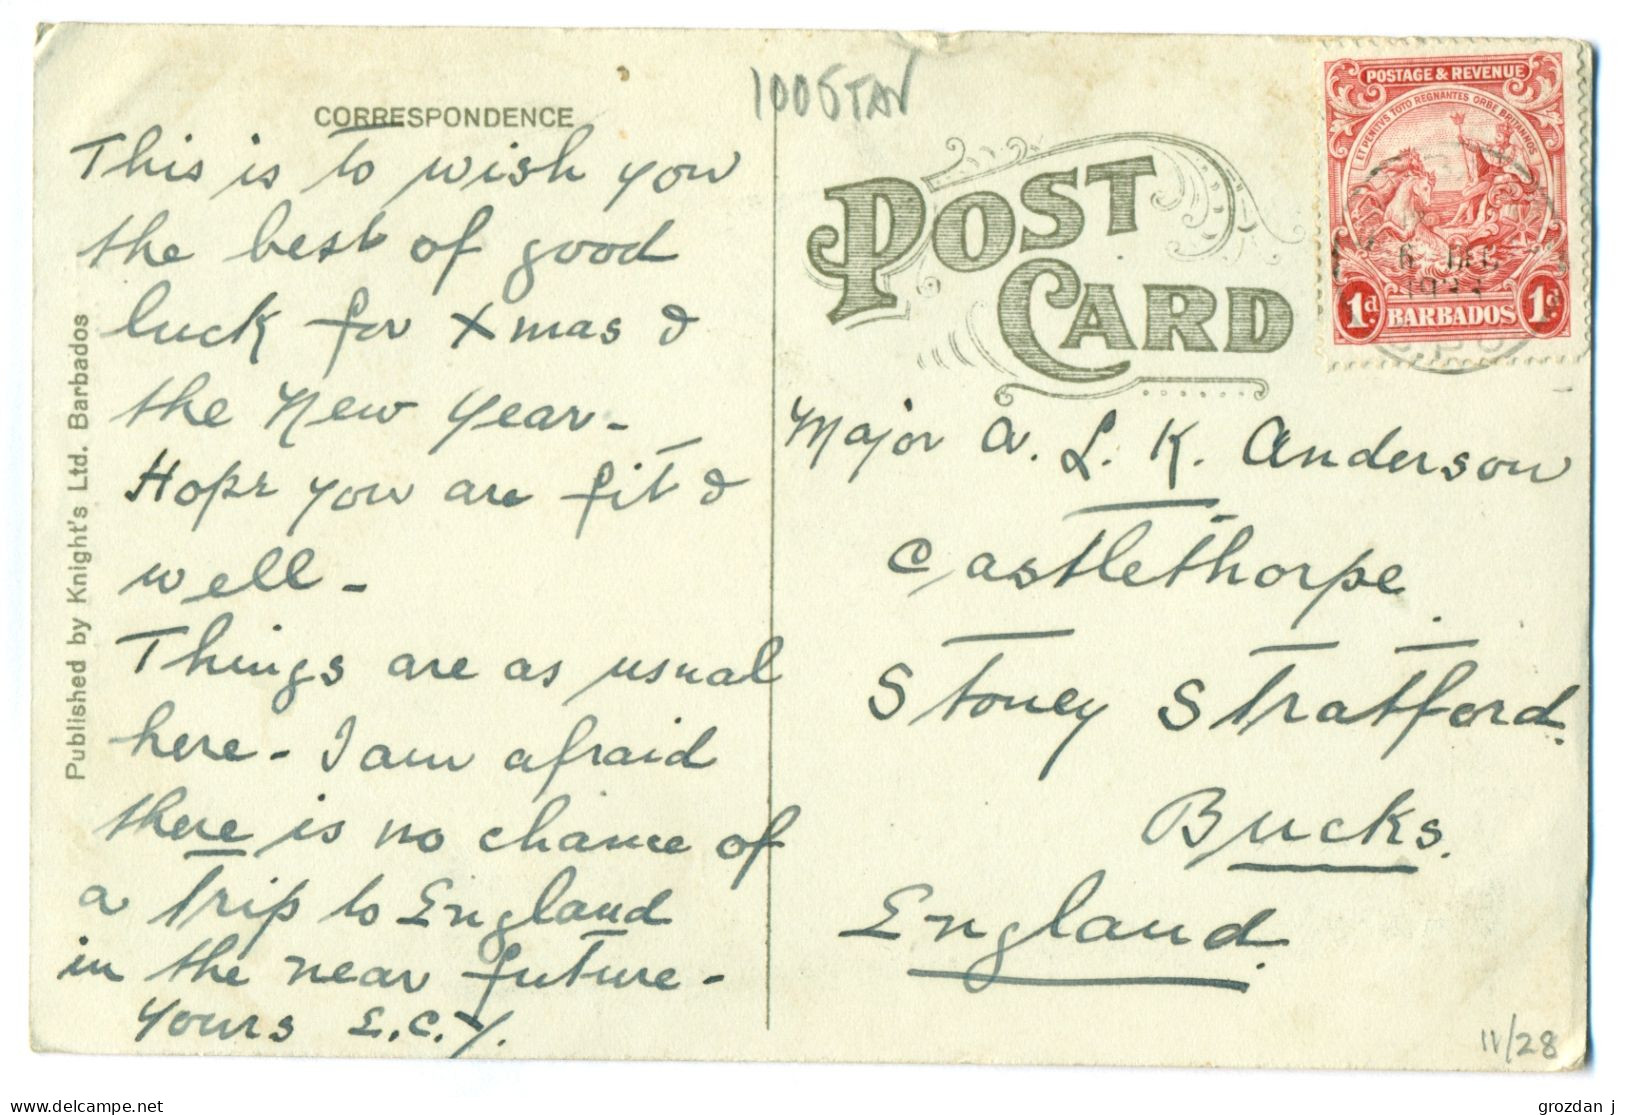 CORRESPONDENCE
This is to wish you
the best of good
luck for Xmas &
the New Year -
Hope you are fit &
well -
Things are as usual
here - I am afraid
there is no chance of
a trip to England
in the near future -
Yours E.C.Y.
Published by Knight's Ltd. Barbados
POST
CARD
POSTAGE & REVENUE
ET PENITVS TOTO REGNANTES ORBE BRITANNOS
6 DEC
1d BARBADOS 1d
Major A. L. K. Anderson
Castlethorpe
Stoney Stratford.
Bucks.
England.
11/28
www.delcampe.net
grozdan j